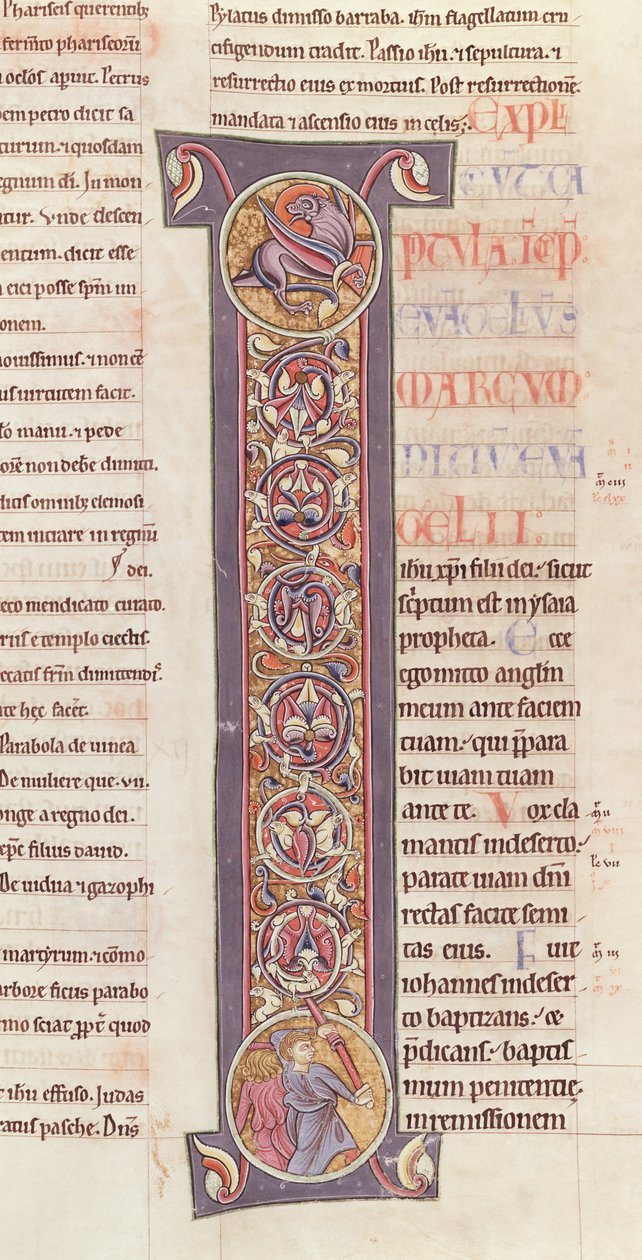 Phariseis querentib;
fermto phariseoru
oclos apuit. Petrus
petro dicit sa
turum. ⁊ quosdam
egnum di. In mon
tur. Vnde descen
entum. dicit esse
eici posse spm in
onem.
nouissimus. ⁊ non ce
uirtutem facit.
manu. ⁊ pede
non debe dimitti.
dicis omnib; elemosi
tem intrare in regnu
dei.
ceco mendicato curato.
e templo eiectis.
peccatis frm dimittendi.
hec facet.
Parabola de uinea
De muliere que .vii.
longe a regno dei.
xpc filius dauid.
De uidua ⁊ gazophi
martyrum. ⁊ como
arbore ficus parabo
sciat ppt quod
ihu effuso. Judas
pasche. Dns
Pylatus dimisso barraba. ihm flagellatum cru
cifigendum tradit. Passio ihu. ⁊ sepultura. ⁊
resurrectio eius ex mortuis. Post resurrectione.
mandata ⁊ ascensio eius in celis;.
EXPLI
PTVLA. ICP.
MARCVM
GELII
ihu xpi filii dei. sicut
scptum est in ysaia
propheta. Ecce
ego mitto anglm
meum ante faciem
tuam. qui ppara
bit uiam tuam
ante te. Vox cla
mantis in deserto.
parate uiam dni
rectas facite semi
tas eius. Fuit
iohannes in deser
to baptizans. ⁊
pdicans. baptis
mum penitentie.
in remissionem